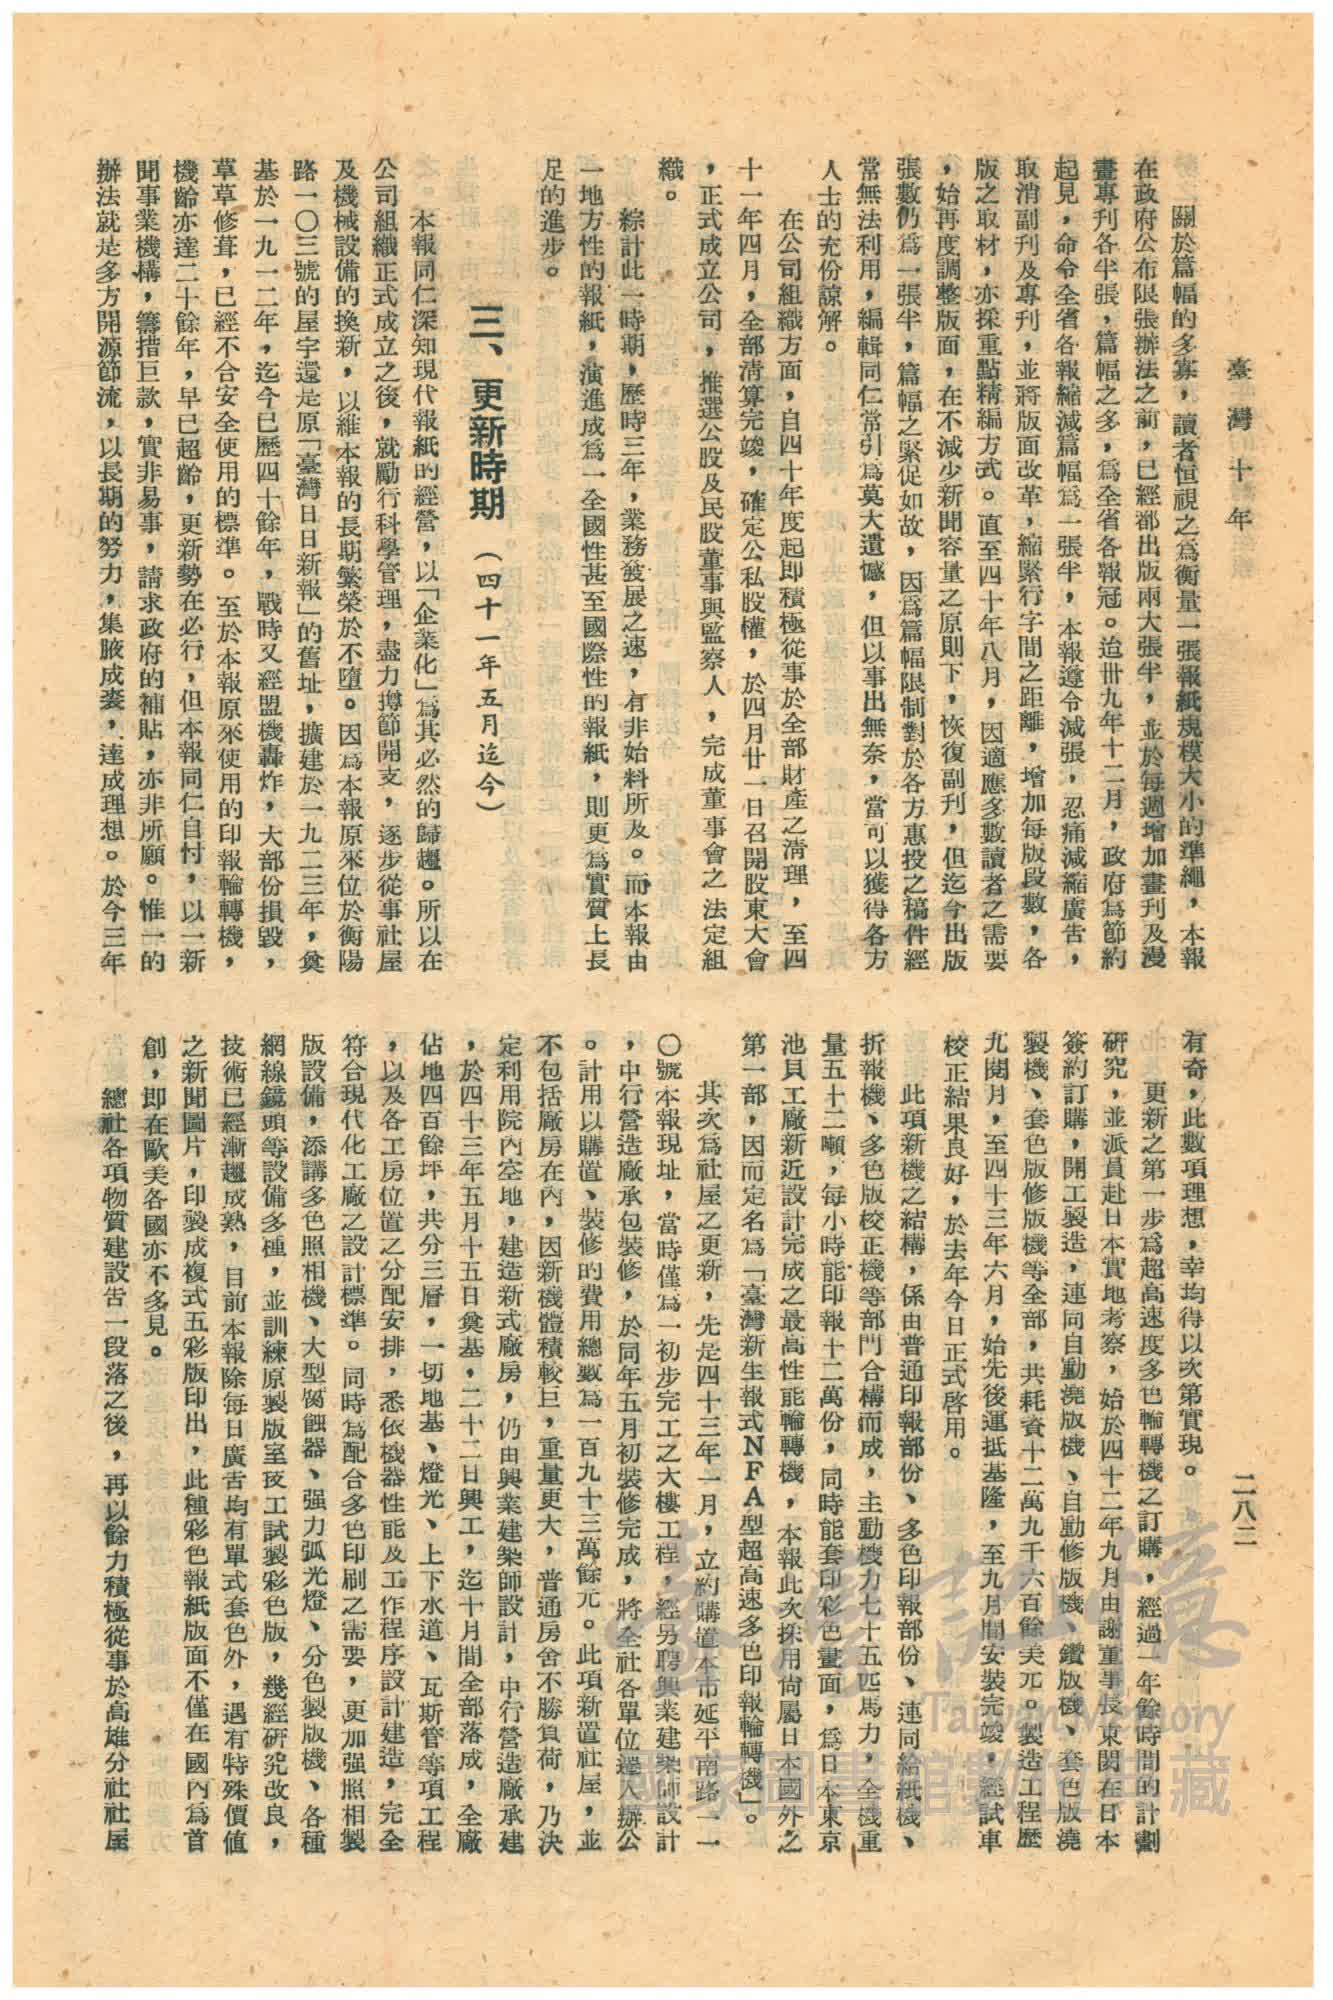 臺灣十年
二八二
關於篇幅的多寡，讀者恒視之爲衡量一張報紙規模大小的準繩，本報
在政府公布限張辦法之前，已經都出版兩大張半，並於每週增加畫刊及漫
畫專刊各半張，篇幅之多，爲全省各報冠。迨卅九年十二月，政府爲節約
起見，命令全省各報縮減篇幅爲一張半，本報遵令減張，忍痛減縮廣告，
取消副刊及專刊，並將版面改革，縮緊行字間之距離，增加每版段數，各
版之取材，亦採重點精編方式。直至四十年八月，因適應多數讀者之需要
，始再度調整版面，在不減少新聞容量之原則下，恢復副刊，但迄今出版
張數仍爲一張半，篇幅之緊促如故，因爲篇幅限制對於各方惠投之稿件經
常無法利用，編輯同仁常引爲莫大遺憾，但以事出無奈，當可以獲得各方
人士的充份諒解。
在公司組織方面，自四十年度起即積極從事於全部財產之淸理，至四
十一年四月，全部淸算完竣，確定公私股權，於四月廿一日召開股東大會
，正式成立公司，推選公股及民股董事與監察人，完成董事會之法定組
織。
綜計此一時期，歷時三年，業務發展之速，有非始料所及。而本報由
一地方性的報紙，演進成爲一全國性甚至國際性的報紙，則更爲實質上長
足的進步。
三、更新時期（四十一年五月迄今）
本報同仁深知現代報紙的經營，以「企業化」爲其必然的歸趨。所以在
公司組織正式成立之後，就勵行科學管理，盡力撙節開支，逐步從事社屋
及機械設備的換新，以維本報的長期繁榮於不墮。因爲本報原來位於衡陽
路一〇三號的屋宇還是原「臺灣日日新報」的舊址，擴建於一九二三年，奠
基於一九一二年，迄今已歷四十餘年，戰時又經盟機轟炸，大部份損毀，
草草修葺，已經不合安全使用的標準。至於本報原來使用的印報輪轉機，
機齡亦達二十餘年，早已超齡，更新勢在必行，但本報同仁自忖，以一新
聞事業機構，籌措巨款，實非易事，請求政府的補貼，亦非所願。惟一的
辦法就是多方開源節流，以長期的努力，集腋成裘，達成理想。於今三年
有奇，此數項理想，幸均得以次第實現。
更新之第一步爲超高速度多色輪轉機之訂購，經過一年餘時間的計劃
研究，並派員赴日本實地考察，始於四十二年九月由謝董事長東閔在日本
簽約訂購，開工製造，連同自動澆版機、自動修版機、鑽版機、套色版澆
製機、套色版修版機等全部，共耗資十二萬九千六百餘美元。製造工程歷
九閱月，至四十三年六月，始先後運抵基隆，至九月間安裝完竣，經試車
校正結果良好，於去年今日正式啓用。
此項新機之結構，係由普通印報部份、多色印報部份、連同給紙機、
折報機、多色版校正機等部門合構而成，主動機力七十五匹馬力，全機重
量五十二噸，每小時能印報十二萬份，同時能套印彩色畫面，爲日本東京
池貝工廠新近設計完成之最高性能輪轉機，本報此次採用尙屬日本國外之
第一部，因而定名爲「臺灣新生報式NFA型超高速多色印報輪轉機」。
其次爲社屋之更新，先是四十三年一月，立約購置本市延平南路一一
〇號本報現址，當時僅爲一初步完工之大樓工程，經另聘興業建築師設計
，中行營造廠承包裝修，於同年五月初裝修完成，將全社各單位遷入辦公
。計用以購置、裝修的費用總數爲一百九十三萬餘元。此項新置社屋，並
不包括廠房在內，因新機體積較巨，重量更大，普通房舍不勝負荷，乃決
定利用院內空地，建造新式廠房，仍由興業建築師設計，中行營造廠承建
，於四十三年五月十五日奠基，二十二日興工，迄十月間全部落成，全廠
佔地四百餘坪，共分三層，一切地基、燈光、上下水道、瓦斯管等項工程
，以及各工房位置之分配安排，悉依機器性能及工作程序設計建造，完全
符合現代化工廠之設計標準。同時爲配合多色印刷之需要，更加强照相製
版設備，添購多色照相機、大型腐蝕器、强力弧光燈、分色製版機、各種
網線鏡頭等設備多種，並訓練原製版室技工試製彩色版，幾經研究改良，
技術已經漸趨成熟，目前本報除每日廣告均有單式套色外，遇有特殊價值
之新聞圖片，印製成複式五彩版印出，此種彩色報紙版面不僅在國內爲首
創，即在歐美各國亦不多見。
總社各項物質建設告一段落之後，再以餘力積極從事於高雄分社社屋
臺灣記憶
Taiwan Memory
國家圖書館數位典藏